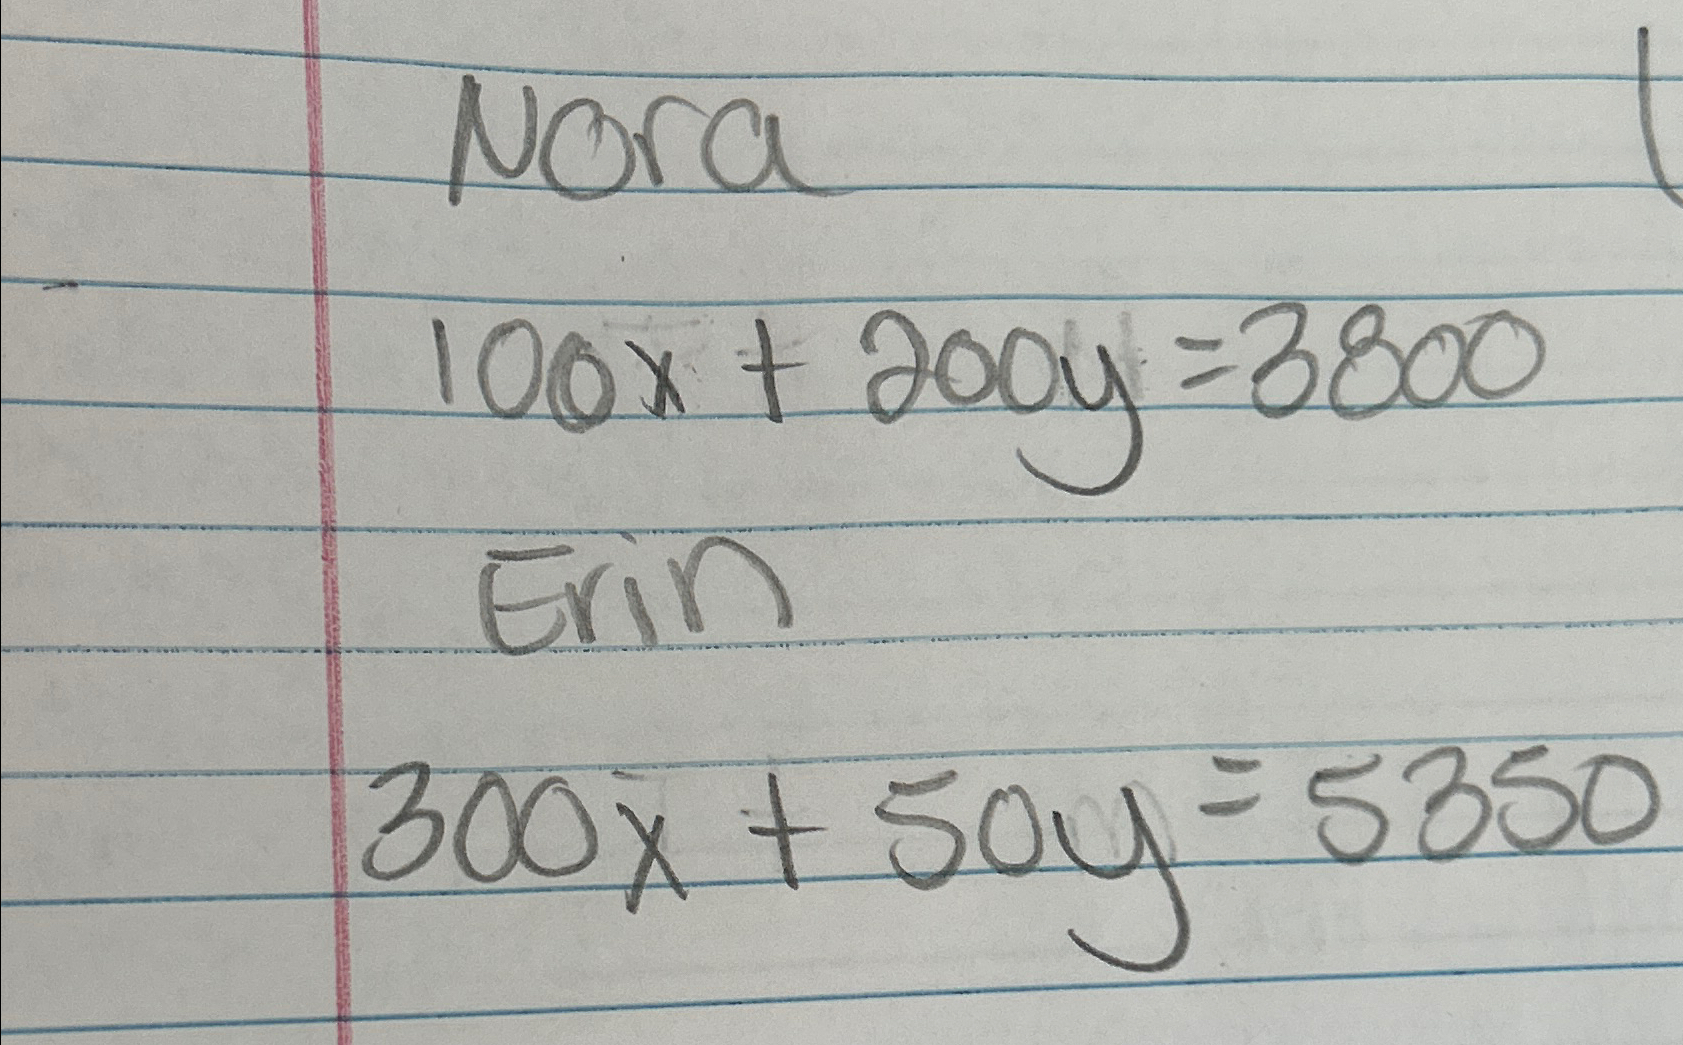 Nora
100x + 200y = 3800
Erin
300x + 50y = 5350